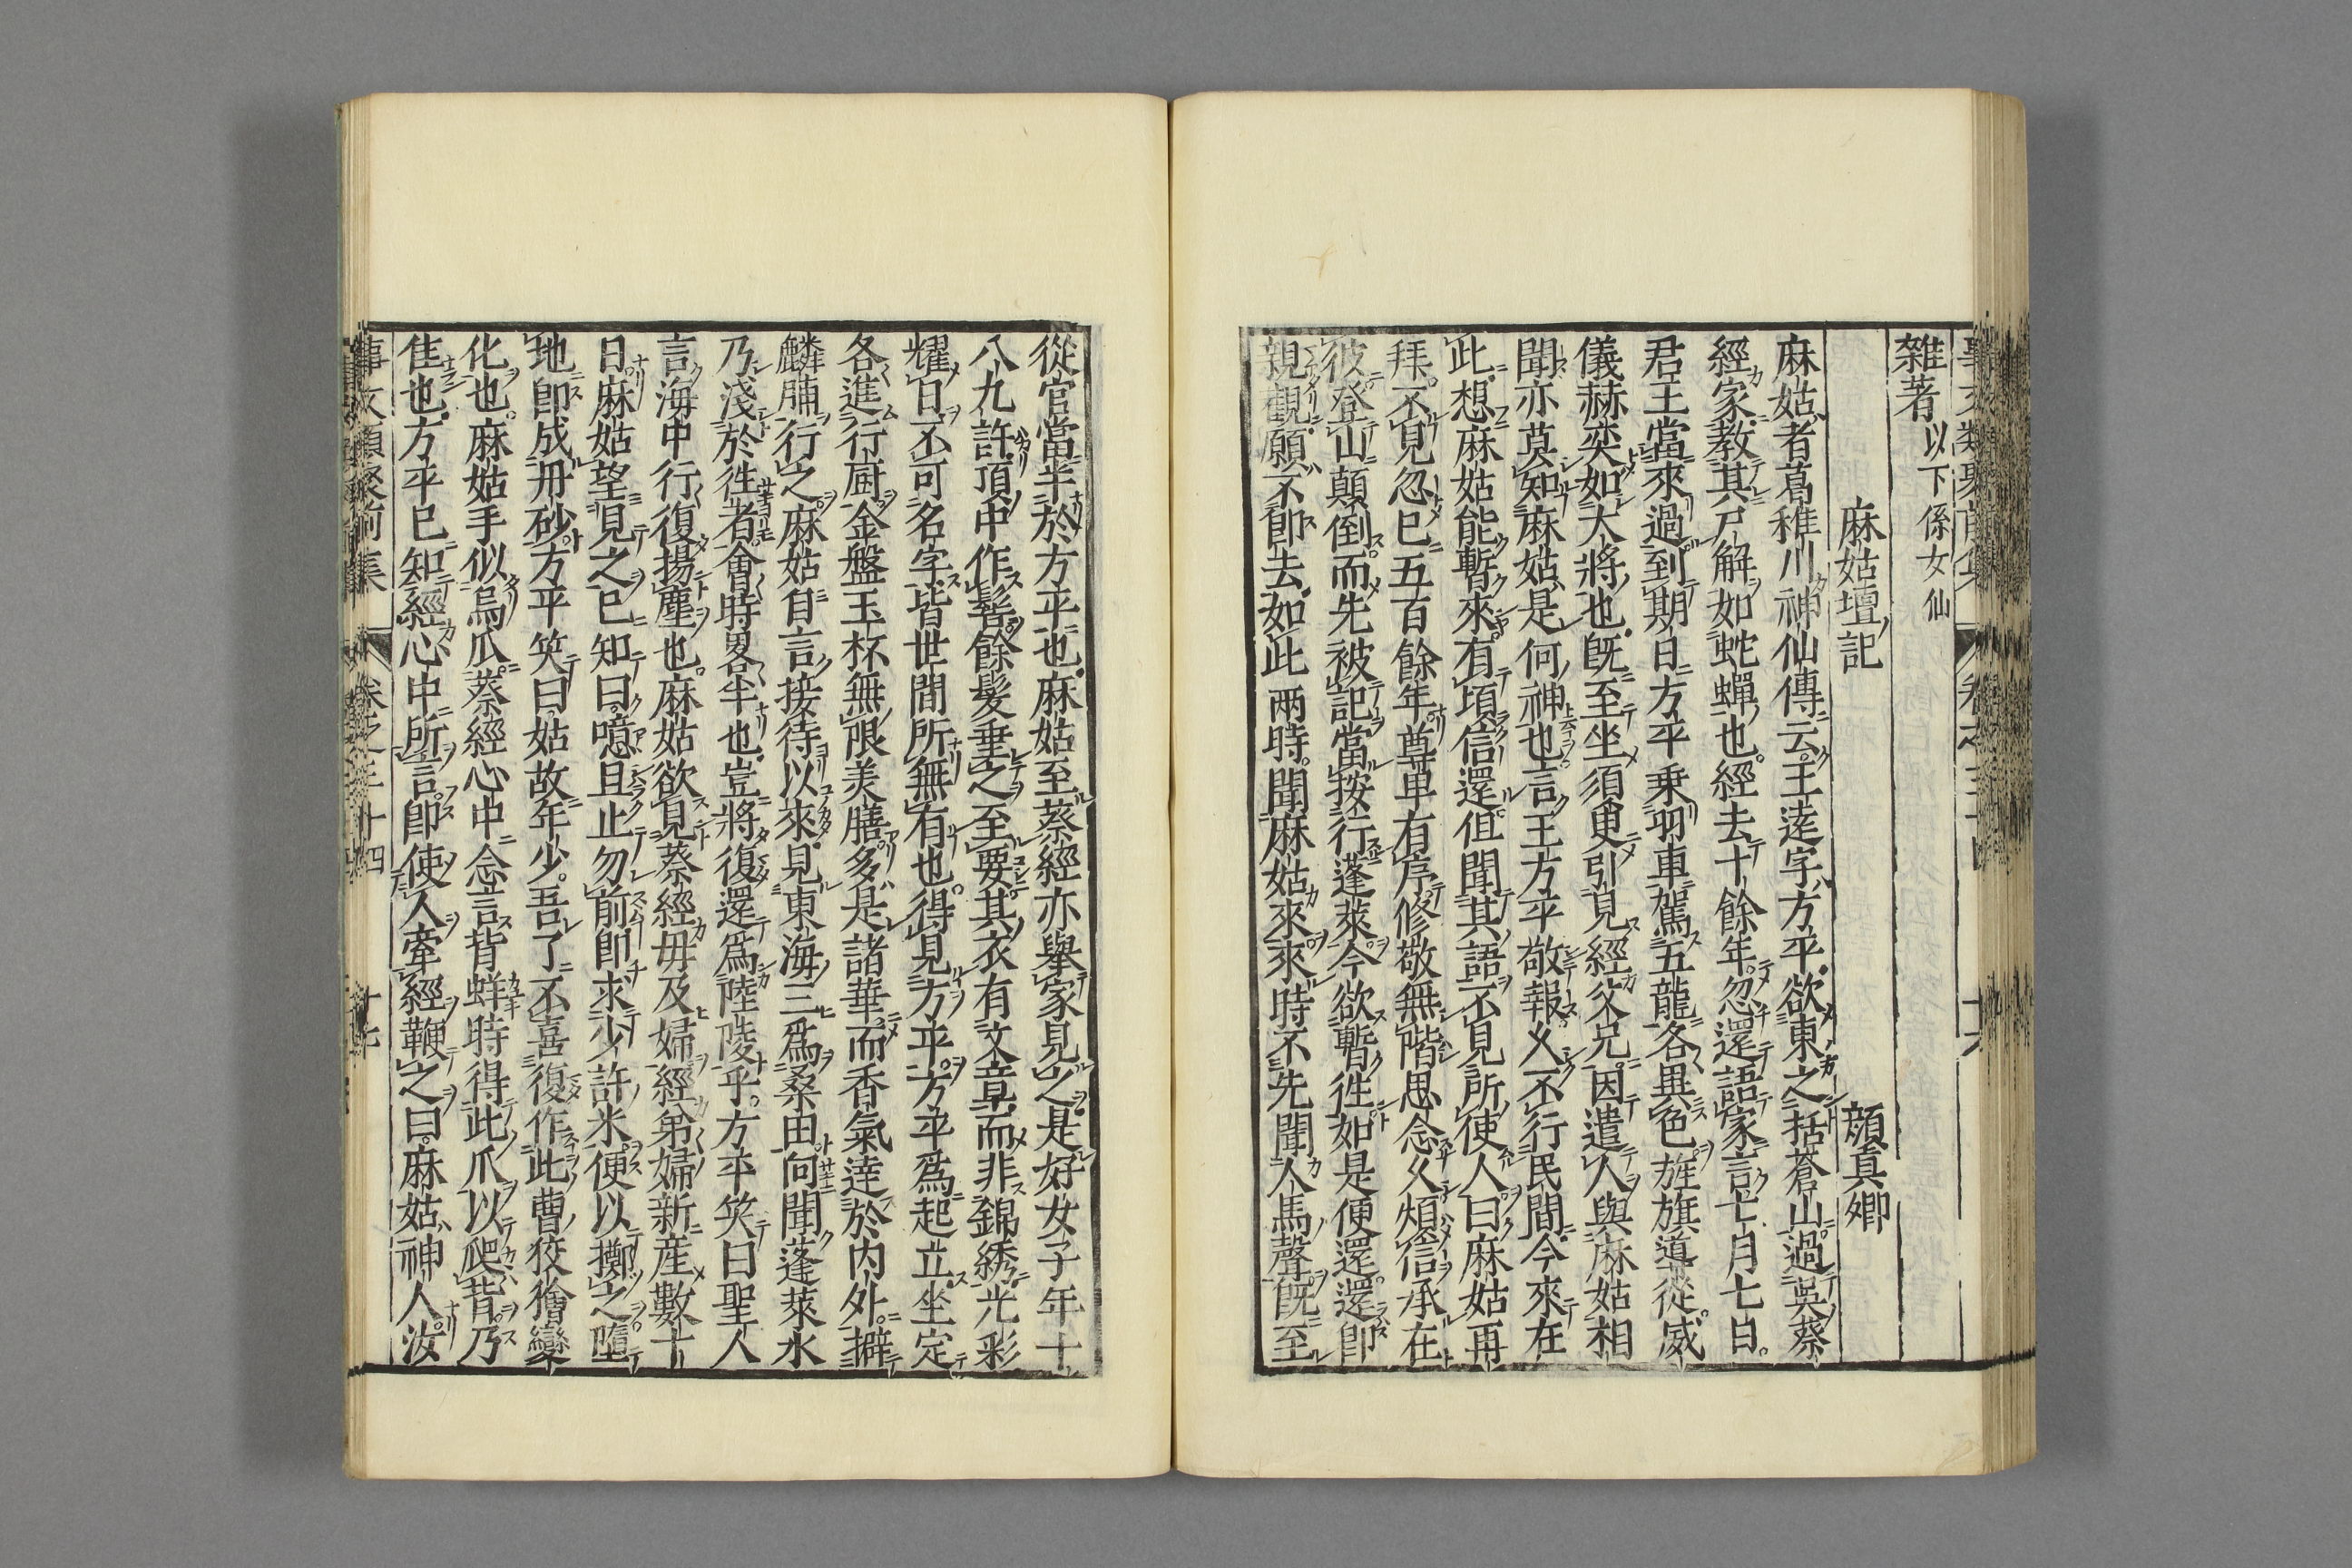 雜著以下係女仙
麻姑壇記 顏真卿
麻姑者葛稚川神仙傳云王逵字方平欲東之括蒼山過吳蔡
經家教其尸解如蛇蟬也經去十餘年忽還語家言七月七日
君王當來過到期日方平乘羽車駕五龍各異色旌旗導從威
儀赫奕如大將也旣至坐須臾引見經父兄因遣人與麻姑相
聞亦莫知麻姑是何神也言王方平敬報乆不行民間今來在
此想麻姑能暫來有頃信還但聞其語不見所使人曰麻姑再
拜不見忽已五百餘年尊卑有序修敬無階思念乆煩信承在
彼登山顛倒而先被記當按行蓬萊今欲暫徃如是便還還卽
親觀願不卽去如此兩時聞麻姑來來時不先聞人馬聲旣至
從官當半於方平也麻姑至蔡經亦舉家見之是好女子年十
八九許頂中作髻餘髮垂之至要其衣有文章而非錦綉光彩
耀日不可名字皆世間所無有也得見方平方平爲起立坐定
各進行厨金盤玉杯無限美膳多是諸華而香氣逹於内外擗
麟脯行之麻姑自言接待以來見東海三爲桑田向聞蓬萊水
乃淺於徃者會時畧半也豈將復還爲陸陵乎方平笑曰聖人
言海中行復揚塵也麻姑欲見蔡經母及婦經弟婦新產數十
日麻姑望見之已知曰噫且止勿前卽求少許米便以擲之墮
地卽成丹砂方平笑曰姑故年少吾了不喜復作此曹狡獪變
化也麻姑手似鳥爪蔡經心中念言背蛘時得此爪以爬背乃
佳也方平已知經心中所言卽使人牽經鞭之曰麻姑神人汝
事文類聚前集 卷之三十四 十七